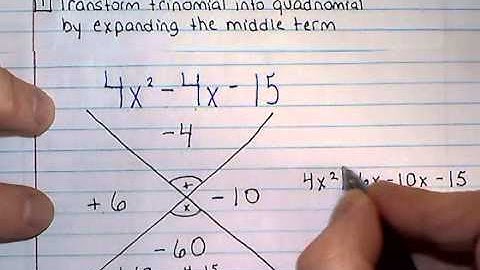 1 Transform trinomial into quadnomial
by expanding the middle term
4x² - 4x - 15
-4
+
+6 -10
x
4x² 6x - 10x - 15
-60